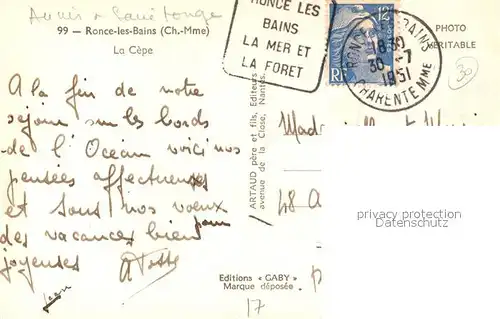 99 - Ronce-les-Bains (Ch.-Mme)
La Cèpe
RONCE LES
BAINS
LA MER ET
LA FORET
12F
RF
RONCE LES BAINS
18 30
30 -7
1951
CHARENTE MME
PHOTO
VÉRITABLE
30
A la fin de notre
séjour sur les bords
de l'Océan voici nos
pensées affectueuses
et tous nos voeux
pour
des vacances bien
joyeuses
Jean
ARTAUD père et fils, Editeurs
avenue de la Close, Nantes
48
privacy protection
Datenschutz
Editions « GABY »
Marque déposée.
17